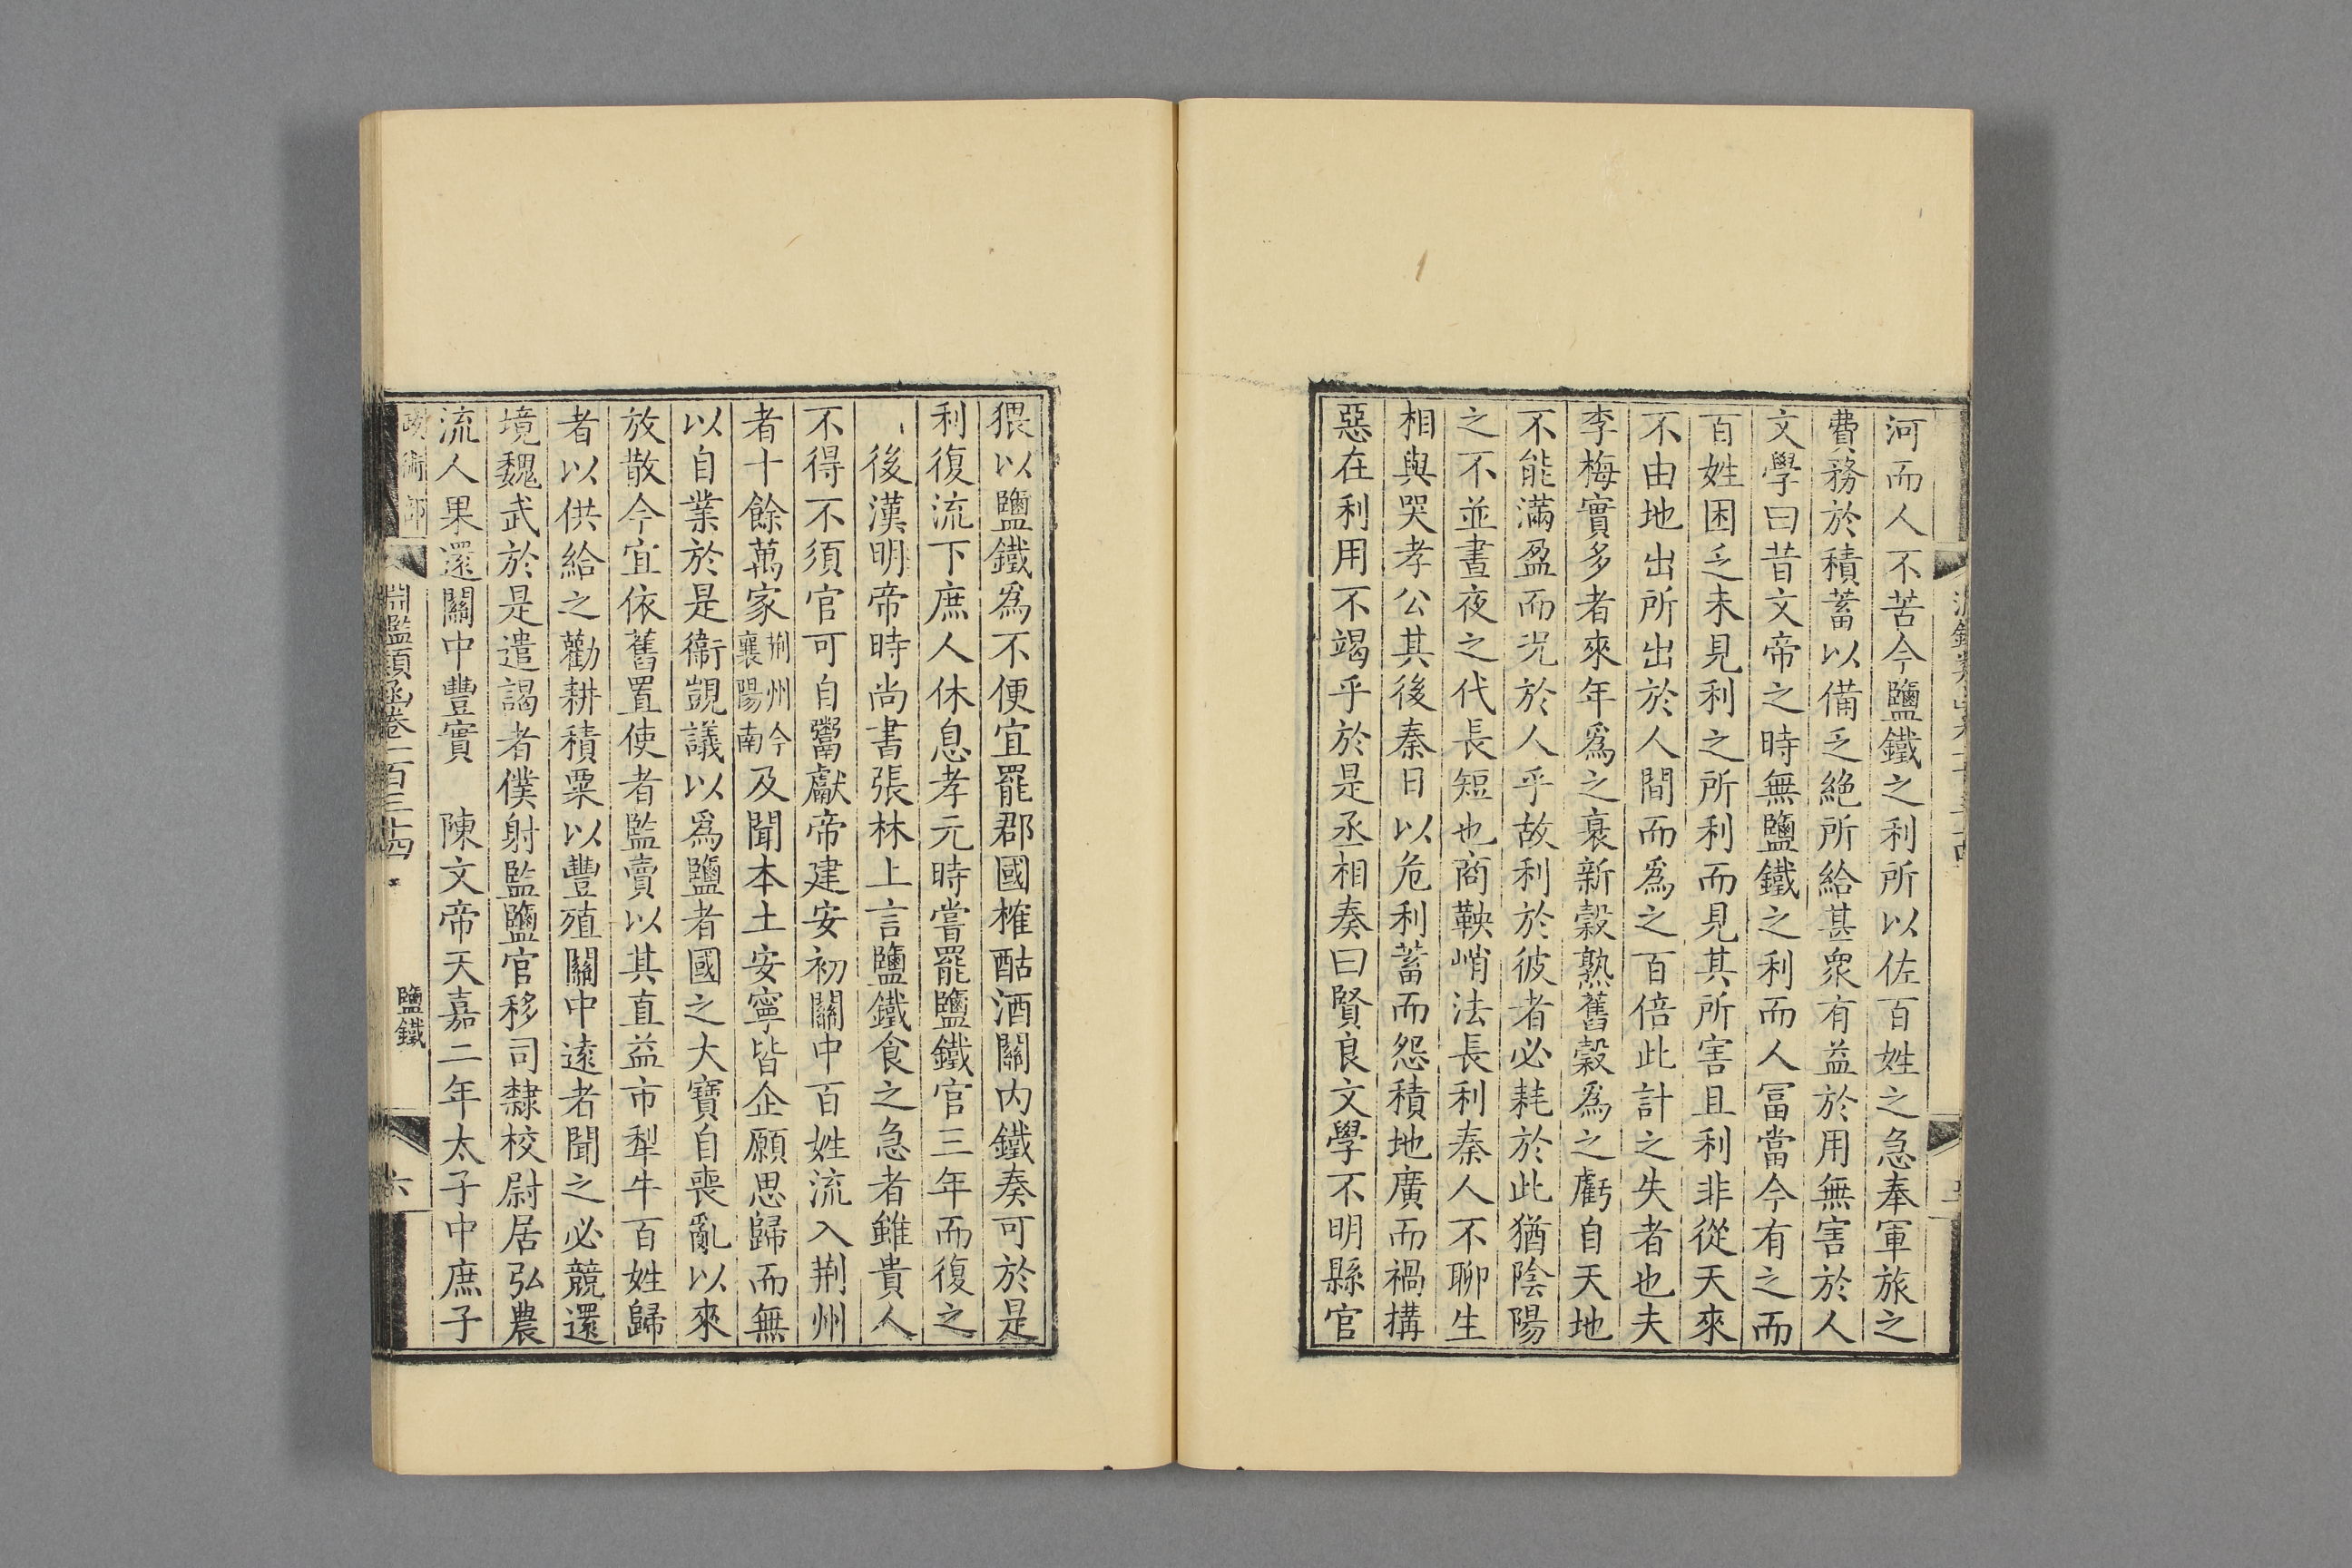 河而人不苦今鹽鐵之利所以佐百姓之急奉軍旅之
費務於積蓄以備乏絶所給甚衆有益於用無害於人
文學曰昔文帝之時無鹽鐵之利而人冨當今有之而
百姓困乏未見利之所利而見其所害且利非從天來
不由地出所出於人間而爲之百倍此計之失者也夫
李梅實多者來年爲之衰新穀熟舊穀爲之虧自天地
不能滿盈而況於人乎故利於彼者必耗於此猶陰陽
之不並晝夜之代長短也商鞅峭法長利秦人不聊生
相與哭孝公其後秦日以危利蓄而怨積地廣而禍搆
惡在利用不竭乎於是丞相奏曰賢良文學不明縣官
猥以鹽鐵爲不便宜罷郡國榷酤酒關内鐵奏可於是
利復流下庶人休息孝元時嘗罷鹽鐵官三年而復之
後漢明帝時尚書張林上言鹽鐵食之急者雖貴人
不得不須官可自鬻獻帝建安初關中百姓流入荆州
者十餘萬家荆州今襄陽南及聞本土安寧皆企願思歸而無
以自業於是衞覬議以爲鹽者國之大寶自喪亂以來
放散今宜依舊置使者監賣以其直益市犁牛百姓歸
者以供給之勸耕積粟以豐殖關中遠者聞之必競還
境魏武於是遣謁者僕射監鹽官移司隸校尉居弘農
流人果還關中豐實　陳文帝天嘉二年太子中庶子
政術部
淵鑑類函卷一百三十四
鹽鐵
六